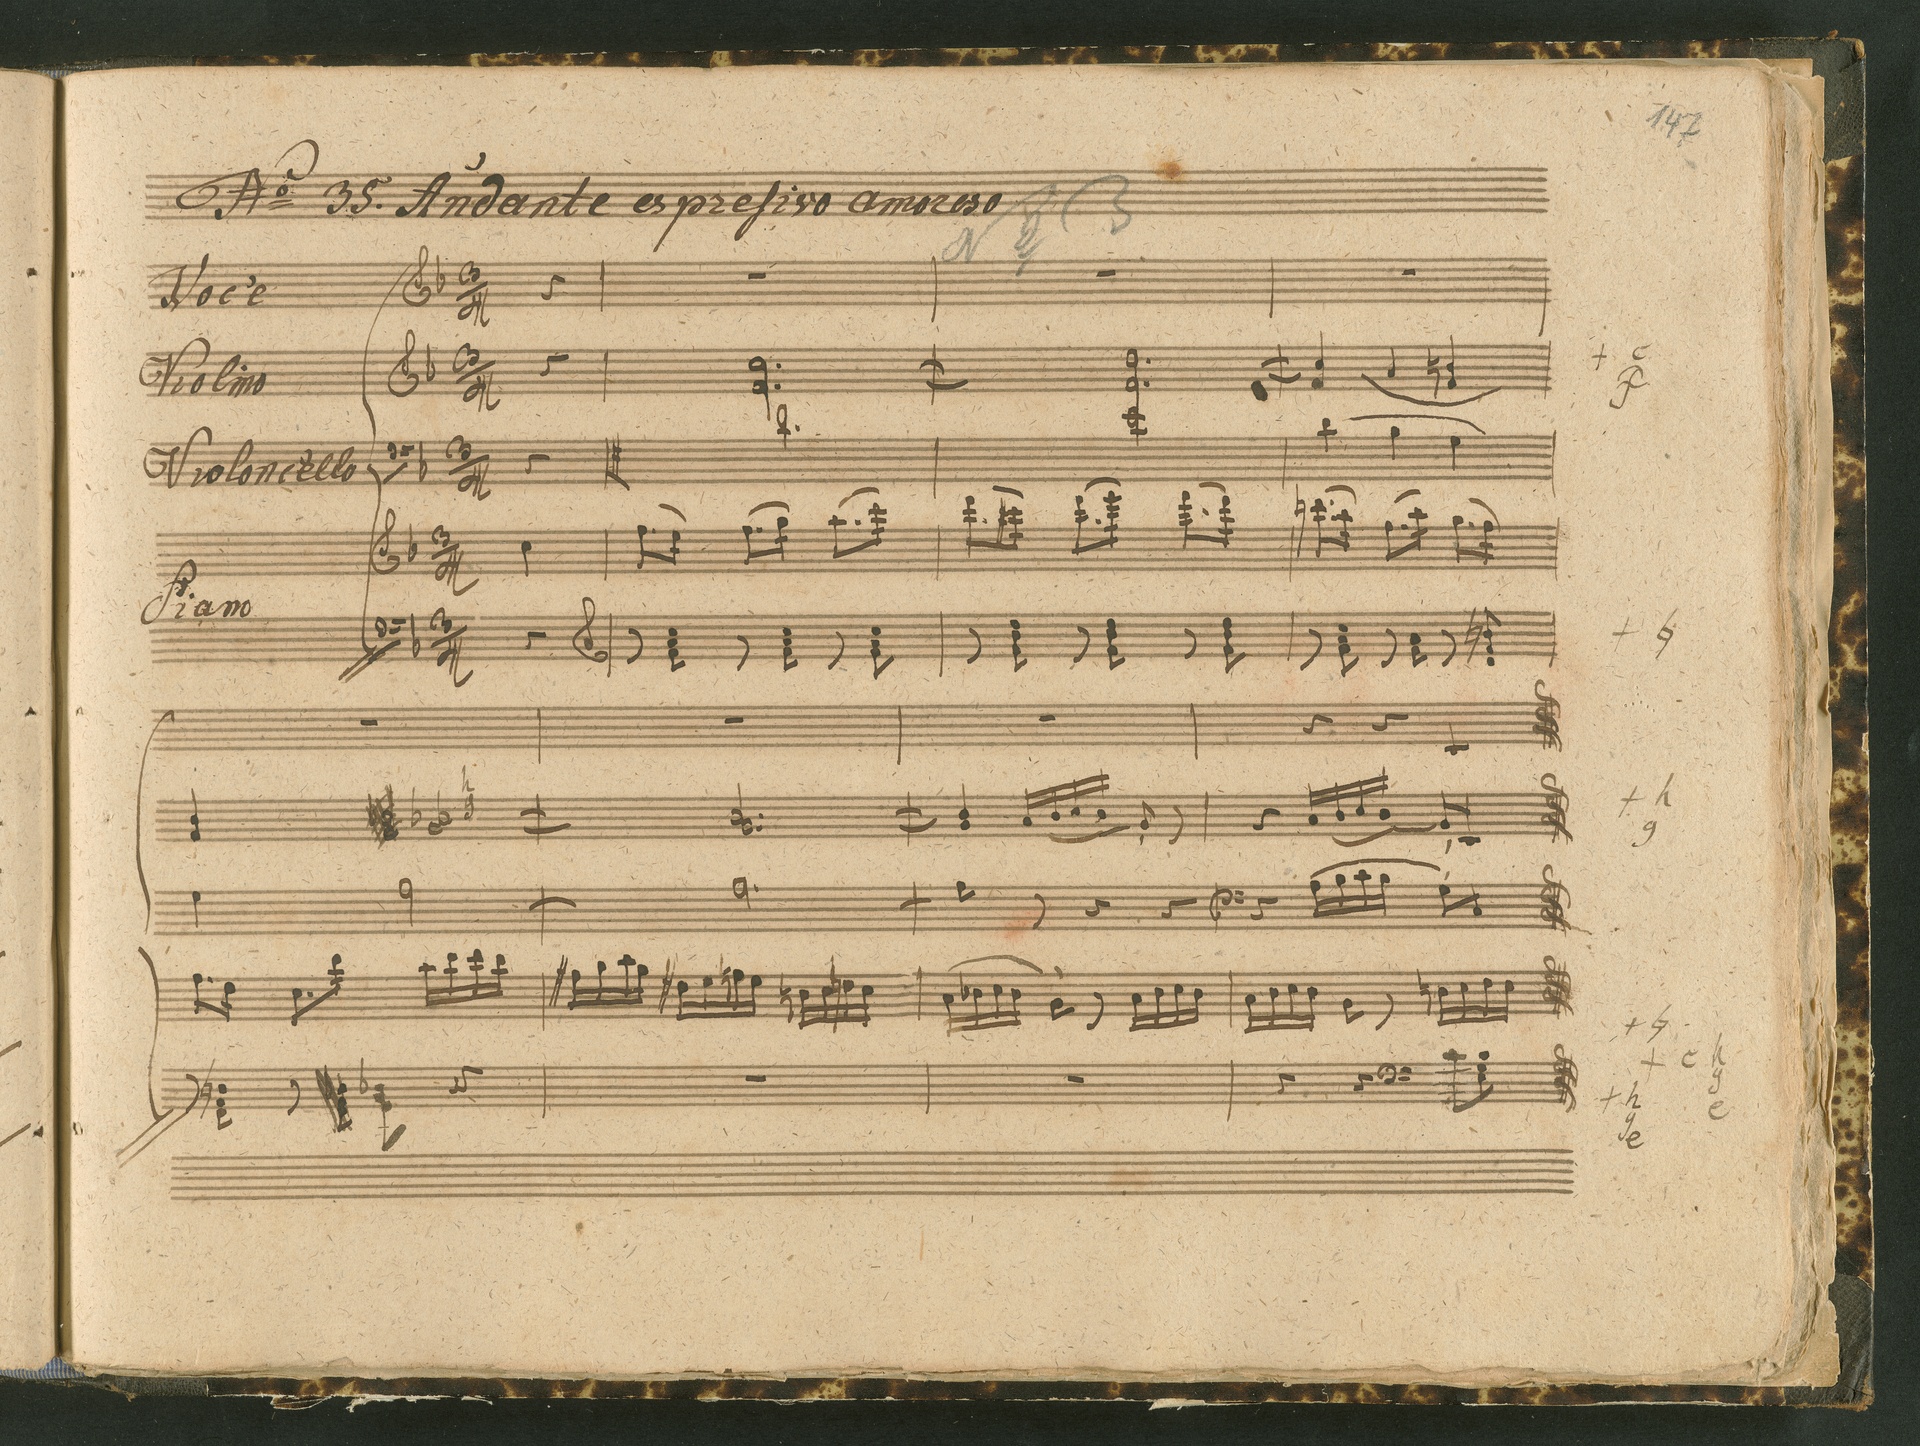 147
No 35. Andante espresivo amoroso
Voce
Violino
+ c
Violoncello
Piano
+ ♮
+ h
g
+ ♮
+ c h
g
e
+ h
g
e